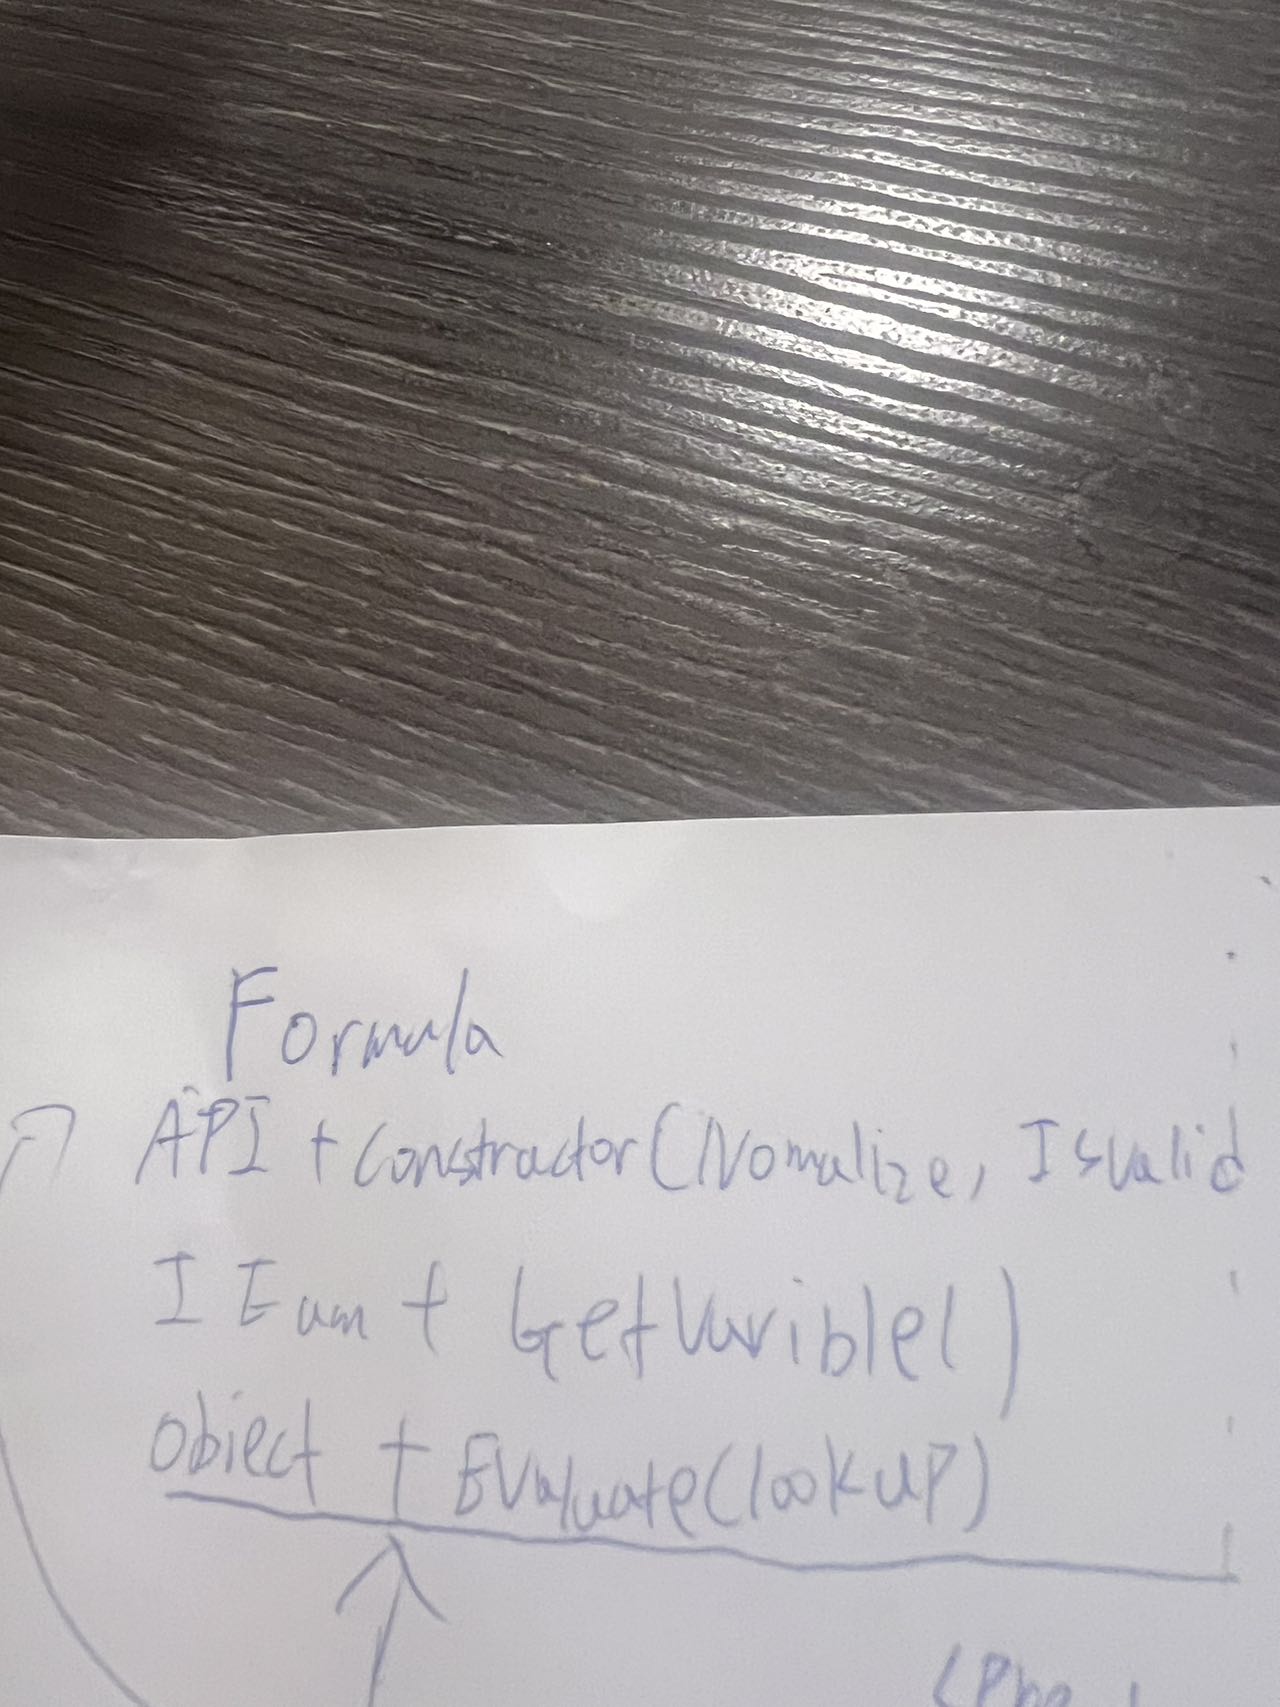 Formula
API + Constractor(Nomalize, Isvalid
I Eum + GetVarible()
Object + Evaluate(lookup)